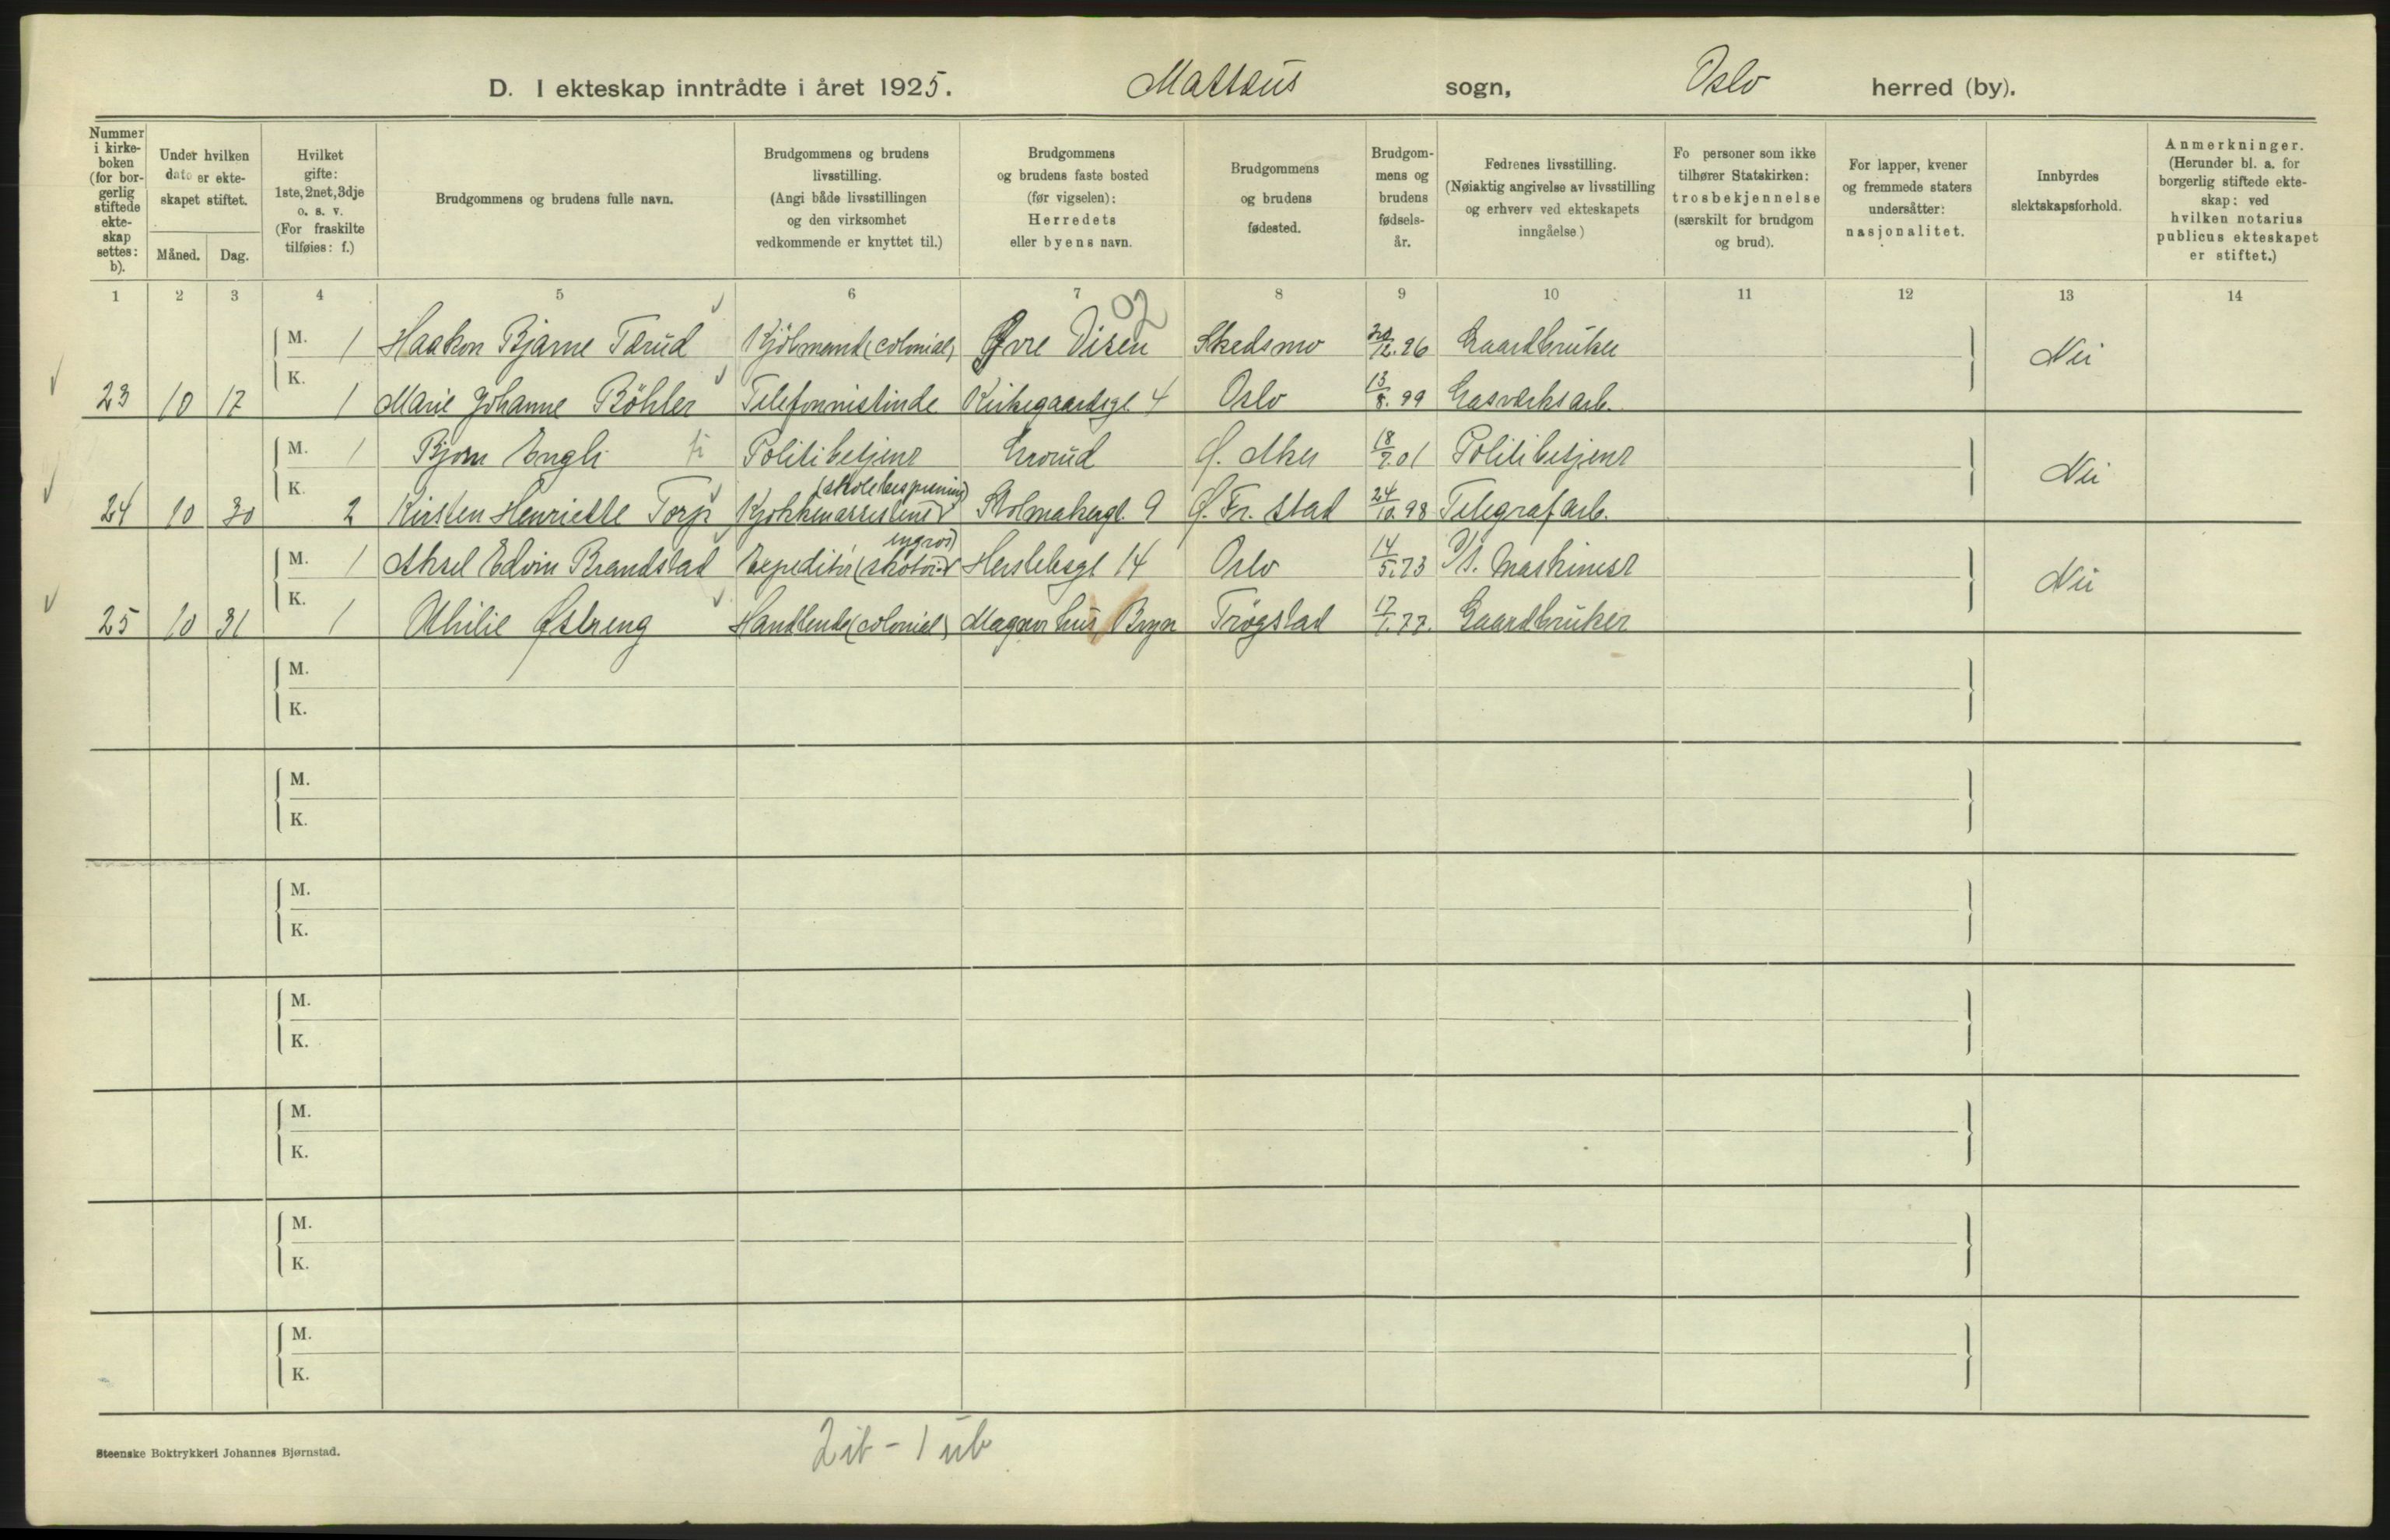 D. I ekteskap inntrådte i året 1925. Mattæus sogn, Oslo herred (by).
Nummer i kirke-boken (for bor-gerlig stiftede ekte-skap settes: b).
Under hvilken dato er ekte-skapet stiftet.
Måned. Dag.
Hvilket gifte: 1ste, 2net, 3dje o. s. v. (For fraskilte tilføies: f.)
Brudgommens og brudens fulle navn.
Brudgommens og brudens livsstilling. (Angi både livsstillingen og den virksomhet vedkommende er knyttet til.)
Brudgommens og brudens faste bosted (før vigselen): Herredets eller byens navn.
Brudgommens og brudens fødested.
Brudgom-mens og brudens fødsels-år.
Fedrenes livsstilling. (Nøiaktig angivelse av livsstilling og erhverv ved ekteskapets inngåelse)
Fo personer som ikke tilhører Statskirken: trosbekjennelse (særskilt for brudgom og brud).
For lapper, kvener og fremmede staters undersåtter: nasjonalitet.
Innbyrdes slektskapsforhold.
Anmerkninger. (Herunder bl. a. for borgerlig stiftede ekte-skap: ved hvilken notarius publicus ekteskapet er stiftet.)
1 2 3 4 5 6 7 8 9 10 11 12 13 14
02
M. 1 Haakon Bjarne Tærud Kjöbmand (colonial) Øvre Visen Skedsmo 20/12.96 Gaardbruker Nei
23 10 17 K. 1 Marie Johanne Böhler Telefonnistinde Kirkegaardsgt. 4 Oslo 13/8.99 Gasværksarb.
M. 1 Bjorn Engh Politibetjent Grorud Ø. Aker 18/7.01 Politibetjent Nei
(skolebespisning)
24 10 30 K. 2 Kirsten Henriette Torp Kjøkkenassistent Skolmakergt. 9 G. Fr. stad 24/10.98 Telegrafarb.
engros)
M. 1 Aksel Edvin Brandstad Expeditör (skotöi Herslebsgt 14 Oslo 14/5.73 Maskinist Nei
25 10 31 K. 1 Othilie Østreng Handlende (colonial) Magnushus Bryn Trøgstad 17/1.77. Gaardbruker
M.
K.
M.
K.
M.
K.
M.
K.
M.
K.
M.
K.
M.
K.
Steenske Boktrykkeri Johannes Bjørnstad.
2 ib - 1 ub